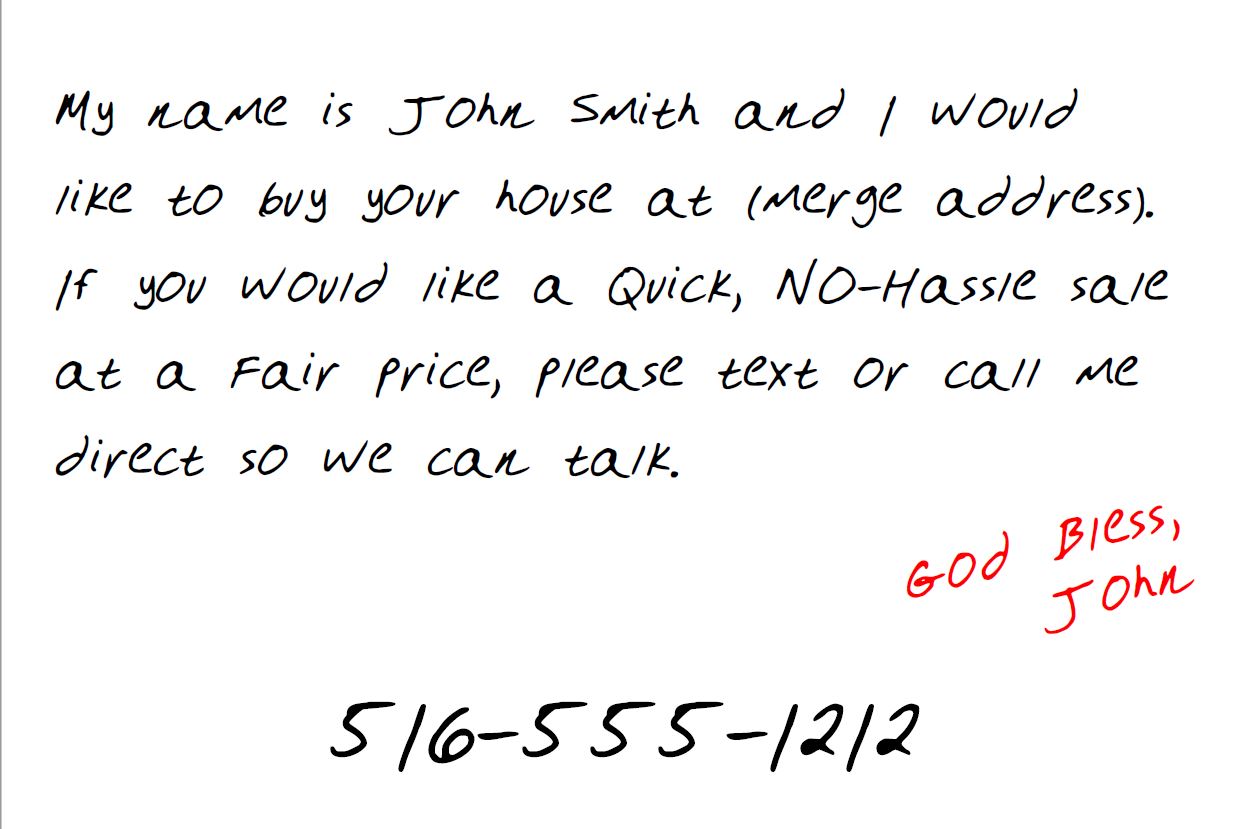 My name is John Smith and I would
like to buy your house at (merge address).
If you would like a Quick, NO-Hassle sale
at a Fair price, please text or call me
direct so we can talk.
God Bless,
John
516-555-1212